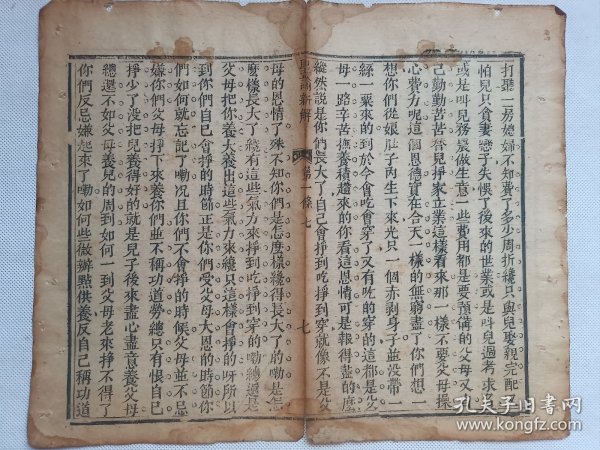 打聽一房媳婦不知費了多少周折纔只與兒娶親完配又
怕兒只貪妻戀子失悞了後來的世業或是叫兒過考求名
或是叫兒務農做生意一些費用都是要預備的父母又自
己勤勤苦苦替兒掙家立業這樣看來那一樣不要父母操
心費力呢這個恩德實在合天一樣的無窮盡了你們想一
想你們從娘肚子內生下來光只一個赤剥身子並沒帶一
絲一粟來的到於今會吃會穿了又有吃的穿的這都是父
母一路辛苦撫養積趲來的你看這恩情可是報得盡的麽
縱然說是你們長大了自己會掙到吃掙到穿就像不是父
聖諭新解
第一條
七
七
母的恩情了殊不知你們是怎麽樣纔得長大了的嘞是怎
麽樣長大了纔有這些氣力來掙到吃掙到穿的嘞總還是
父母把你養大養出這些氣力來纔只這樣會掙的呀所以
到你們自己會掙的時節正是你們受父母大恩的時節你
們如何就忘記了嘞况且你們不會掙的時候父母並不忌
嫌你們父母掙下來養你們並不稱功道勞總只有恨自己
掙少了沒把兒養得好的就是兒子後來盡心盡意養父母
總還不如父母養兒的周到如何一到父母老來掙不得了
你們反忌嫌起來了嘞如何些做辦點供養反自己稱功道
孔夫子旧书网
www.kongfz.com